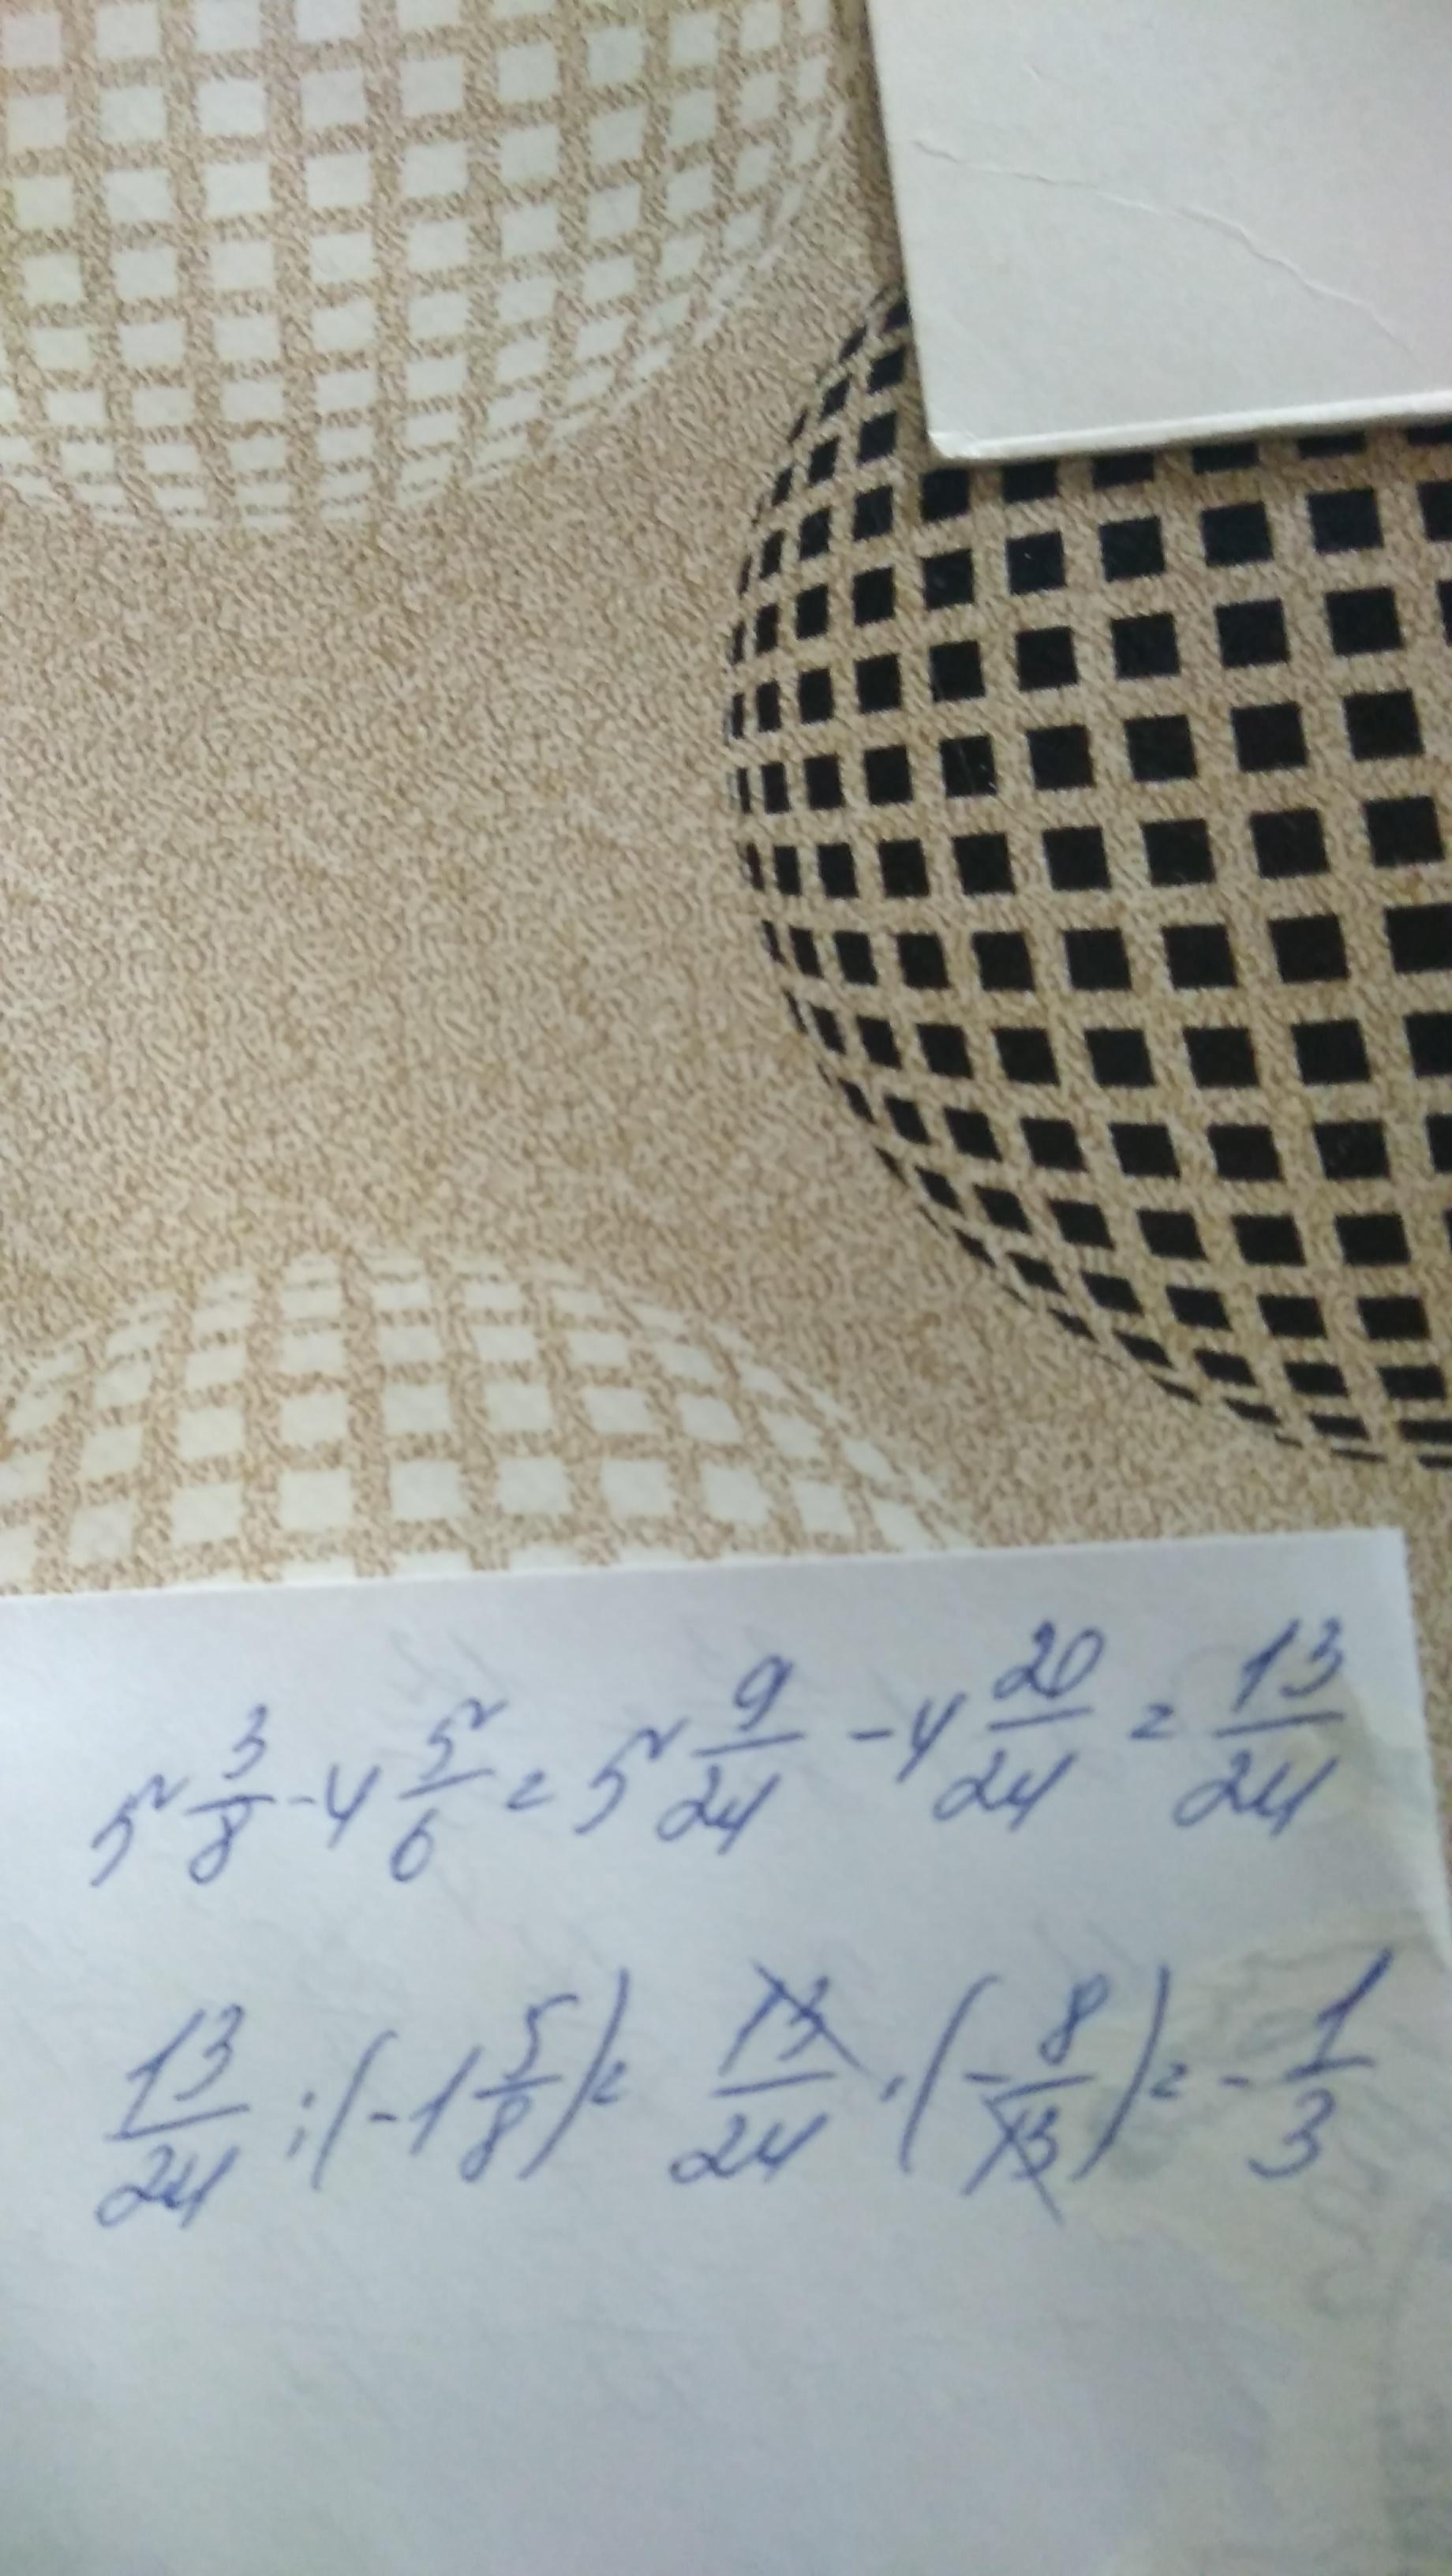 5 3/8 - 4 5/6 = 5 9/24 - 4 20/24 = 13/24
13/24 : (-1 5/8) = 13/24 · (-8/13) = -1/3